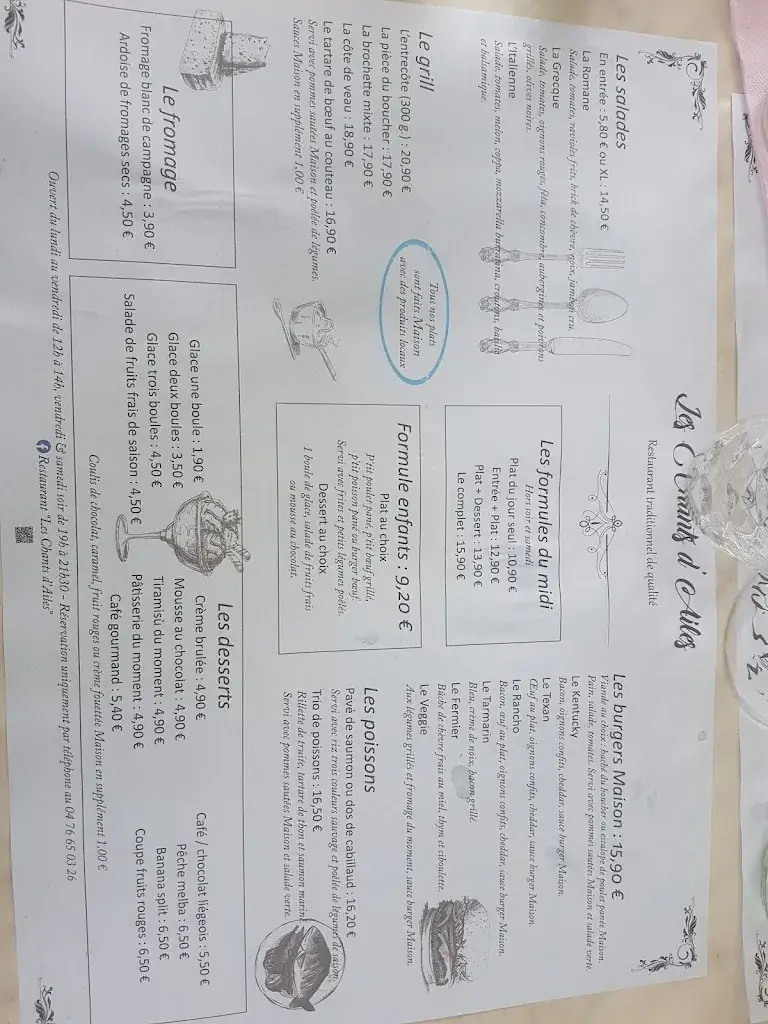 Les Chants d'Ailes
Restaurant traditionnel de qualité
Les salades
En entrée : 5,80 € ou XL : 14,50 €
La Romane
Salade, tomates, ravioles frits, brick de chèvre, noix, jambon cru.
La Grecque
Salade, tomates, oignons rouges, féta, concombre, aubergines et poivrons
grillés, olives noires.
L'Italienne
Salade, tomates, melon, coppa, mozzarella burratina, croûtons, basilic
et balsamique.
Le grill
L'entrecôte (300 g.) : 20,90 €
La pièce du boucher : 17,90 €
La brochette mixte : 17,90 €
La côte de veau : 18,90 €
Le tartare de bœuf au couteau : 16,90 €
Servi avec pommes sautées Maison et poêlée de légumes.
Sauces Maison en supplément 1,00 €
Tous nos plats
sont faits Maison
avec des produits locaux
Les formules du midi
Hors soir et samedi
Plat du jour seul : 10,90 €
Entrée + Plat : 12,90 €
Plat + Dessert : 13,90 €
Le complet : 15,90 €
Formule enfants : 9,20 €
Plat au choix
P'tit poulet pané, p'tit bœuf grillé,
p'tit poisson pané ou burger bœuf.
Servi avec frites et petits légumes poêlés.
Dessert au choix
1 boule de glace, salade de fruits frais
ou mousse au chocolat.
Les burgers Maison : 15,90 €
Viande au choix : haché du boucher ou escalope de poulet panée Maison.
Pain, salade, tomates. Servi avec pommes sautées Maison et salade verte.
Le Kentucky
Bacon, oignons confits, cheddar, sauce burger Maison.
Le Texan
Œuf au plat, oignons confits, cheddar, sauce burger Maison.
Le Rancho
Bacon, œuf au plat, oignons confits, cheddar, sauce burger Maison.
Le Tarmarin
Bleu, crème de noix, bacon grillé.
Le Fermier
Bûche de chèvre frais au miel, thym et ciboulette.
Le Veggie
Aux légumes grillés et fromage du moment, sauce burger Maison.
Les poissons
Pavé de saumon ou dos de cabillaud : 16,20 €
Servi avec riz trois couleurs sauvage et poêlée de légumes de saison.
Trio de poissons : 16,50 €
Rillette de truite, tartare de thon et saumon mariné
Servi avec pommes sautées Maison et salade verte.
Le fromage
Fromage blanc de campagne : 3,90 €
Ardoise de fromages secs : 4,50 €
Les desserts
Glace une boule : 1,90 €
Glace deux boules : 3,50 €
Glace trois boules : 4,50 €
Salade de fruits frais de saison : 4,50 €
Crème brulée : 4,90 €
Mousse au chocolat : 4,90 €
Tiramisù du moment : 4,90 €
Pâtisserie du moment : 4,90 €
Café gourmand : 5,40 €
Café / chocolat liégeois : 5,50 €
Pêche melba : 6,50 €
Banana split : 6,50 €
Coupe fruits rouges : 6,50 €
Coulis de chocolat, caramel, fruit rouges ou crème fouettée Maison en supplément 1,00 €
Ouvert du lundi au vendredi de 12h à 14h, vendredi & samedi soir de 19h à 21h30 – Réservation uniquement par téléphone au 04 76 65 03 26
Restaurant "Les Chants d'Ailes"